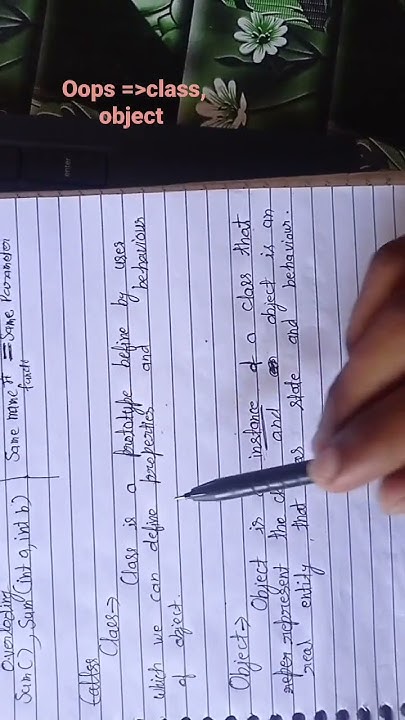 Oops =>class,
object
enter
Overloading
Sum(), Sum(int a, int b)
Same name = Same Parameter
Class=> Class is a prototype define by uses
which we can define properties and behaviour
of object.
Object=> Object is instance of a class that
represent the and object is an
real entity that state and behaviour.